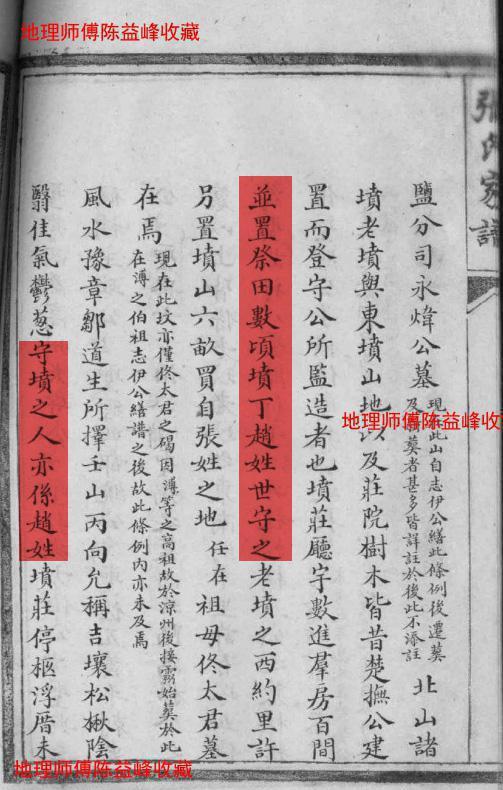 地理师傅陈益峰收藏
張氏家譜
鹽分司永煒公墓
現在此山自志伊公繕此條例後遷葬
及葬者甚多皆詳註於後此不添註
北山諸
墳老墳與東墳山地以及莊院樹木皆昔楚撫公建
置而登守公所監造者也墳莊廳宇數進羣房百間
並置祭田數頃墳丁趙姓世守之老墳之西約里許
另置墳山六畝買自張姓之地
任在
祖母佟太君墓
在焉
現在此坟亦僅佟太君之碣因溥等之高祖故於涼州後接霨始葬於此
在溥之伯祖志伊公繕譜之後故此條例內亦未及焉
風水豫章鄒道生所擇壬山丙向允稱吉壤松楸陰
翳佳氣鬱葱守墳之人亦係趙姓墳莊停柩浮厝未
地理师傅陈益峰收藏
地理师傅陈益峰收藏